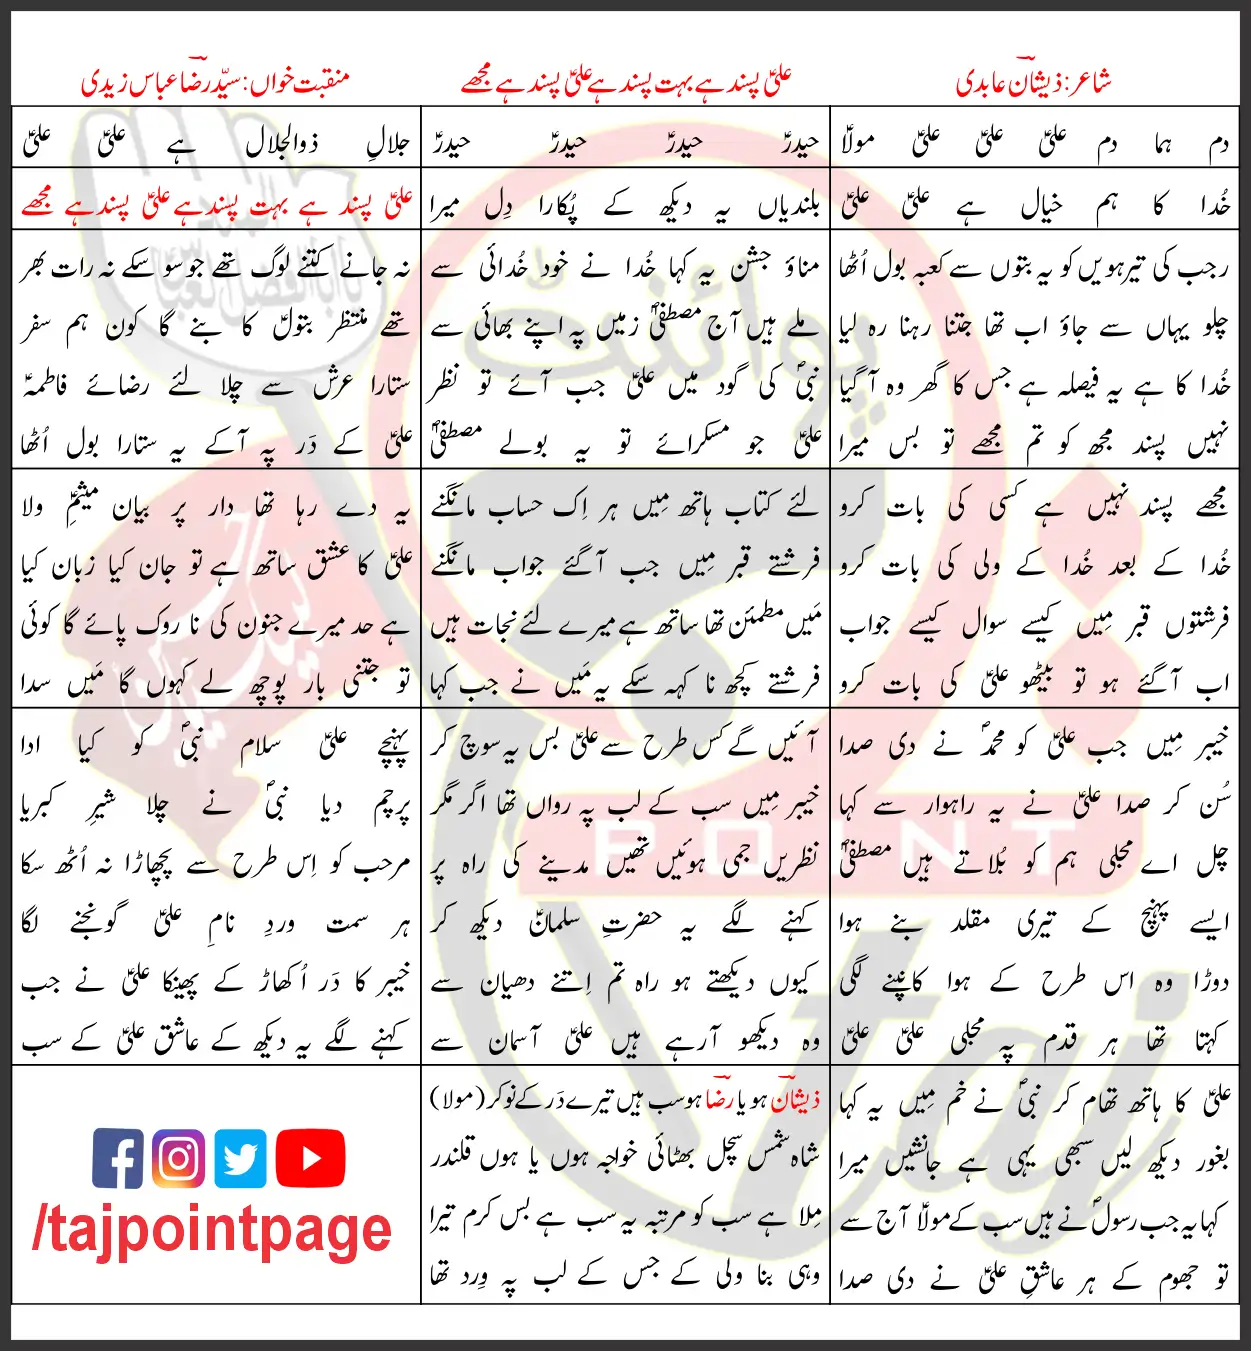 شاعر: ذیشان عابدی
علیؑ پسند ہے بہت پسند ہے علیؑ پسند ہے مجھے
منقبت خواں: سیّد رضا عباس زیدی
دم ہما دم علیؑ علیؑ علیؑ مولاؑ
حیدرؑ حیدرؑ حیدرؑ حیدرؑ
جلالِ ذوالجلال ہے علیؑ علیؑ
خُدا کا ہم خیال ہے علیؑ علیؑ
بلندیاں یہ دیکھ کے پُکارا دِل میرا
علیؑ پسند ہے بہت پسند ہے علیؑ پسند ہے مجھے
رجب کی تیرہویں کو یہ بتوں سے کعبہ بول اُٹھا
چلو یہاں سے جاؤ اب تھا جتنا رہنا رہ لیا
خُدا کا ہے یہ فیصلہ ہے جس کا گھر وہ آ گیا
نہیں پسند مجھ کو تم مجھے تو بس میرا
مناؤ جشن یہ کہا خُدا نے خود خُدائی سے
ملے ہیں آج مصطفیٰؐ زمیں پہ اپنے بھائی سے
نبیؐ کی گود میں علیؑ جب آئے تو نظر
علیؑ جو مسکرائے تو یہ بولے مصطفیٰؐ
نہ جانے کتنے لوگ تھے جو سو سکے نہ رات بھر
تھے منتظر بتولؑ کا بنے گا کون ہم سفر
ستارا عرش سے چلا لئے رضائے فاطمہؑ
علیؑ کے دَر پہ آکے یہ ستارا بول اُٹھا
مجھے پسند نہیں ہے کسی کی بات کرو
خُدا کے بعد خُدا کے ولی کی بات کرو
فرشتوں قبر مِیں کیسے سوال کیسے جواب
اب آگئے ہو تو بیٹھو علیؑ کی بات کرو
لئے کتاب ہاتھ مِیں ہر اِک حساب مانگنے
فرشتے قبر مِیں جب آگئے جواب مانگنے
مَیں مطمئن تھا ساتھ ہے میرے لئے نجات ہیں
فرشتے کچھ نا کہہ سکے یہ مَیں نے جب کہا
یہ دے رہا تھا دار پر بیان میثمِ ولا
علیؑ کا عشق ساتھ ہے تو جان کیا زبان کیا
ہے حد میرے جنون کی نا روک پائے گا کوئی
تو جتنی بار پوچھ لے کہوں گا مَیں سدا
خیبر مِیں جب علیؑ کو محمدؐ نے دی صدا
سُن کر صدا علیؑ نے یہ راہوار سے کہا
چل اے مجلی ہم کو بُلاتے ہیں مصطفیٰؐ
ایسے پہنچ کے تیری مقلد بنے ہوا
دوڑا وہ اس طرح کے ہوا کانپنے لگی
کہتا تھا ہر قدم پہ مجلی علیؑ علیؑ
آئیں گے کس طرح سے علیؑ بس یہ سوچ کر
خیبر مِیں سب کے لب پہ رواں تھا اگر مگر
نظریں جمی ہوئیں تھیں مدینے کی راہ پر
کہنے لگے یہ حضرتِ سلمانؑ دیکھ کر
کیوں دیکھتے ہو راہ تم اِتنے دھیان سے
وہ دیکھو آرہے ہیں علیؑ آسمان سے
پہنچے علیؑ سلام نبیؐ کو کیا ادا
پرچم دیا نبیؐ نے چلا شیرِ کبریا
مرحب کو اِس طرح سے پچھاڑا نہ اُٹھ سکا
ہر سمت وردِ نامِ علیؑ گونجنے لگا
خیبر کا دَر اُکھاڑ کے پھینکا علیؑ نے جب
کہنے لگے یہ دیکھ کے عاشق علیؑ کے سب
علیؑ کا ہاتھ تھام کر نبیؐ نے خم مِیں یہ کہا
بغور دیکھ لیں سبھی یہی ہے جانشیں میرا
کہا یہ جب رسولؐ نے ہیں سب کے مولاؑ آج سے
تو جھوم کے ہر عاشقِ علیؑ نے دی صدا
ذیشان ہو یا رضا ہو سب ہیں تیرے دَر کے نوکر (مولا)
شاہ شمس سچل بھٹائی خواجہ ہوں یا ہوں قلندر
مِلا ہے سب کو مرتبہ یہ سب ہے بس کرم تیرا
وہی بنا ولی کے جس کے لب پہ وِرد تھا
/tajpointpage
پوائنٹ
POINT
taj